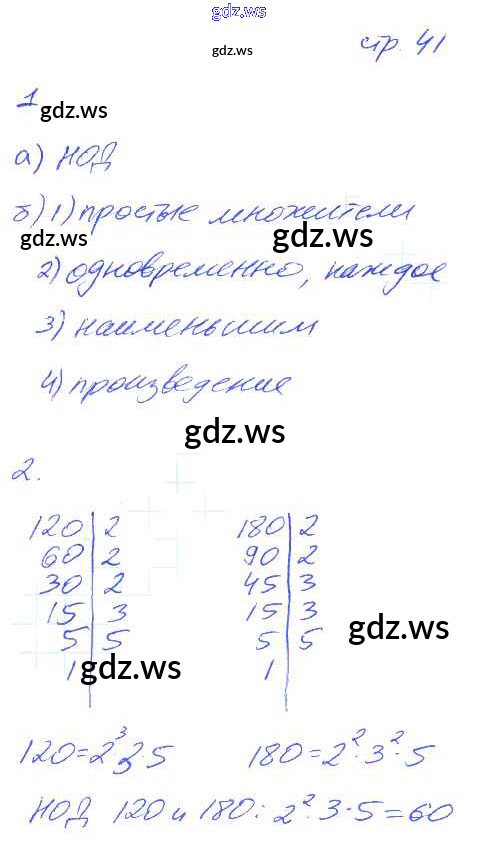 gdz.ws
gdz.ws
стр. 41
1
gdz.ws
а) НОД
б) 1) простые множители
gdz.ws gdz.ws
2) одновременно, каждое
3) наименьшим
4) произведение
gdz.ws
2.
120 | 2 180 | 2
60 | 2 90 | 2
30 | 2 45 | 3
15 | 3 15 | 3
5 | 5 5 | 5
gdz.ws
1 gdz.ws 1
120 = 2³·3·5 180 = 2²·3²·5
НОД 120 и 180: 2²·3·5 = 60